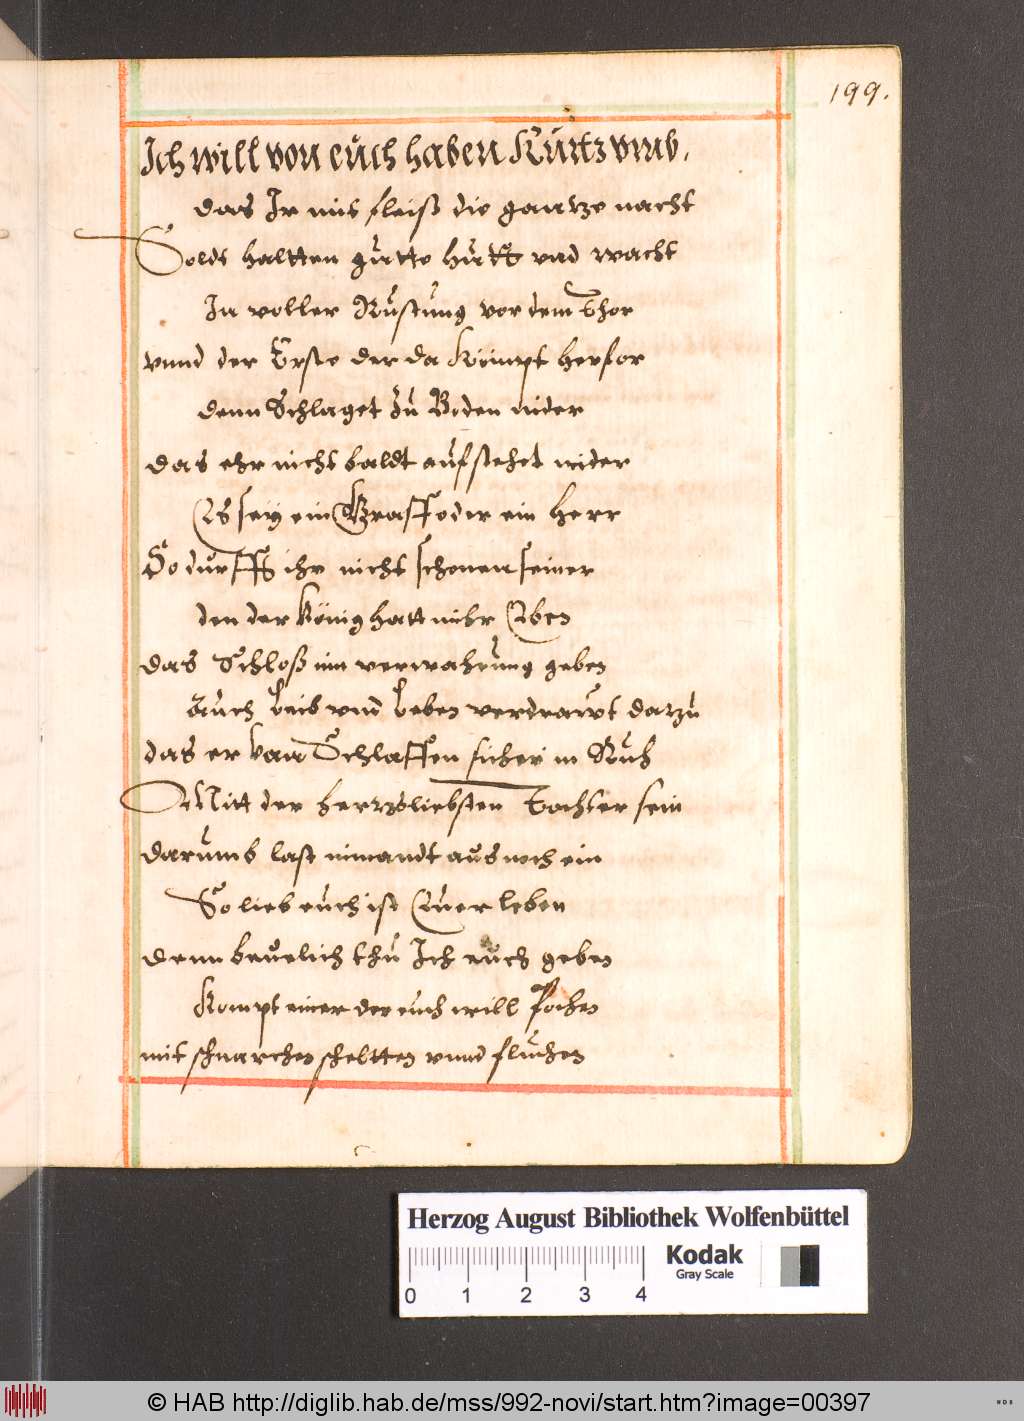 199.
Ich will von euch haben Kurtz vmb.
das Ir mit fleiß die gantze nacht
Soldt haltten gutte hutt vnd wacht
In voller Rustung vor dem Thor
vnnd der Erste der da Kumpt herfor
denn Schlaget Zu Boden nider
das ehr nicht baldt aufstehet wider
Es sey ein Graff oder ein Herr
So durfft ihr nicht schonen seiner
den der König hatt mihr Eben
das Schloß inn verwahrung geben
Auch Leib vnd Leben verdrawt dazu
das er kan Schlaffen sicher in Ruh
Mitt der hertzliebsten Tochter sein
darumb last nimandt aus noch ein
So lieb euch ist Euer leben
denn beuelich thu Ich euch geben
Kompt einer der euch will Pochen
mit schnarchen scheltten vnnd fluchen
Herzog August Bibliothek Wolfenbüttel
Kodak
Gray Scale
0 1 2 3 4
© HAB http://diglib.hab.de/mss/992-novi/start.htm?image=00397